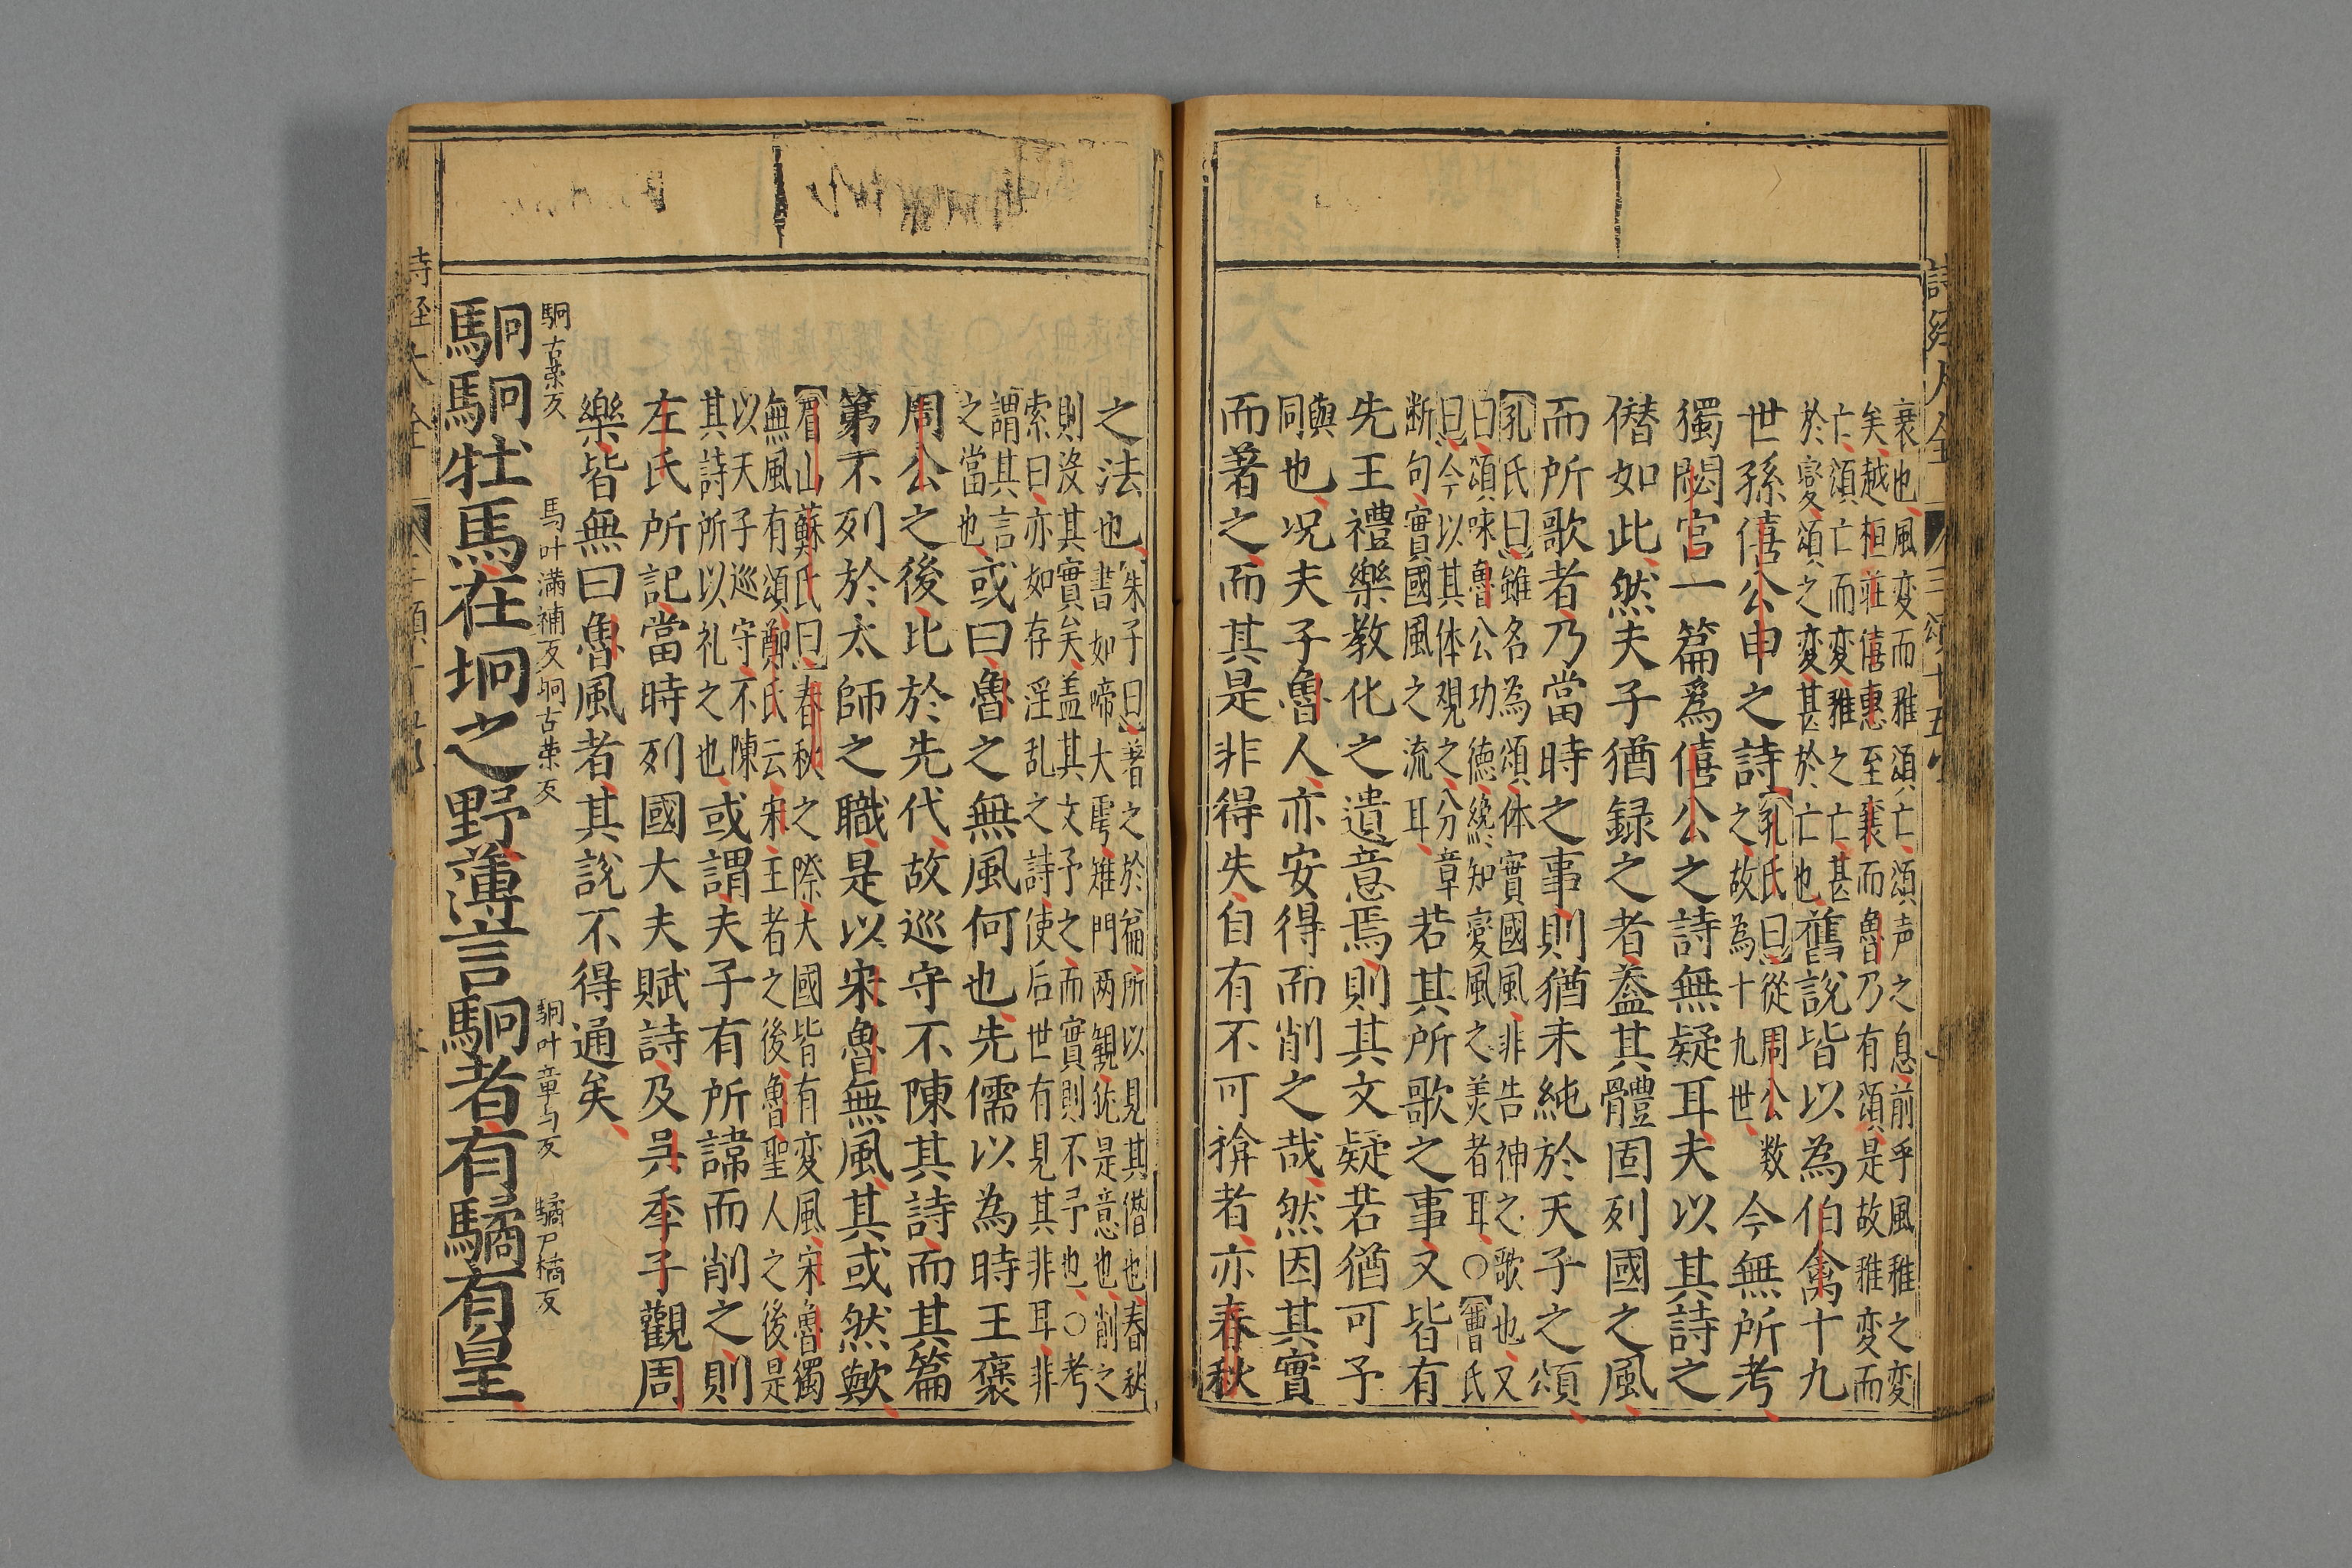 衰也風変而雅頌亡頌声之息前乎風雅之変
矣越桓莊僖惠至襄而魯乃有頌是故雅変而
亡頌亡而変雅之亡甚
於変頌之変甚於亡也舊說皆以為伯禽十九
世孫僖公申之詩孔氏曰從周公数
之故為十九世今無所考
獨閟宮一篇爲僖公之詩無疑耳夫以其詩之
僭如此然夫子猶録之者葢其體固列國之風
而所歌者乃當時之事則猶未純於天子之頌
孔氏曰雖名為頌体實國風非告神之歌也又
曰頌咏魯公功德纔知變風之美者耳○曹氏
曰今以其体覌之分章
断句實國風之流耳若其所歌之事又皆有
先王禮樂教化之遺意焉則其文疑若猶可予
與
同也况夫子魯人亦安得而削之哉然因其實
而著之而其是非得失自有不可揜者亦春秋
之法也朱子曰著之於篇所以見其僭也春秋
書如啼大雩雉門两観犹是意也削之
則沒其實矣盖其文予之而實則不予也○考
索曰亦如存淫乱之詩使后世有見其非耳非
謂其言
之當也或曰魯之無風何也先儒以為時王褒
周公之後比於先代故巡守不陳其詩而其篇
第不列於太師之職是以宋魯無風其或然歟
眉山蘇氏曰春秋之際大國皆有変風宋魯獨
無風有頌鄭氏云宋王者之後魯聖人之後是
以天子巡守不陳
其詩所以礼之也或謂夫子有所諱而削之則
左氏所記當時列國大夫賦詩及吳季子觀周
樂皆無曰魯風者其說不得通矣
駉古荣反 馬叶滿補反 坰古荣反 駉叶章与反 驈戸橘反
駉駉牡馬在坰之野薄言駉者有驈有皇